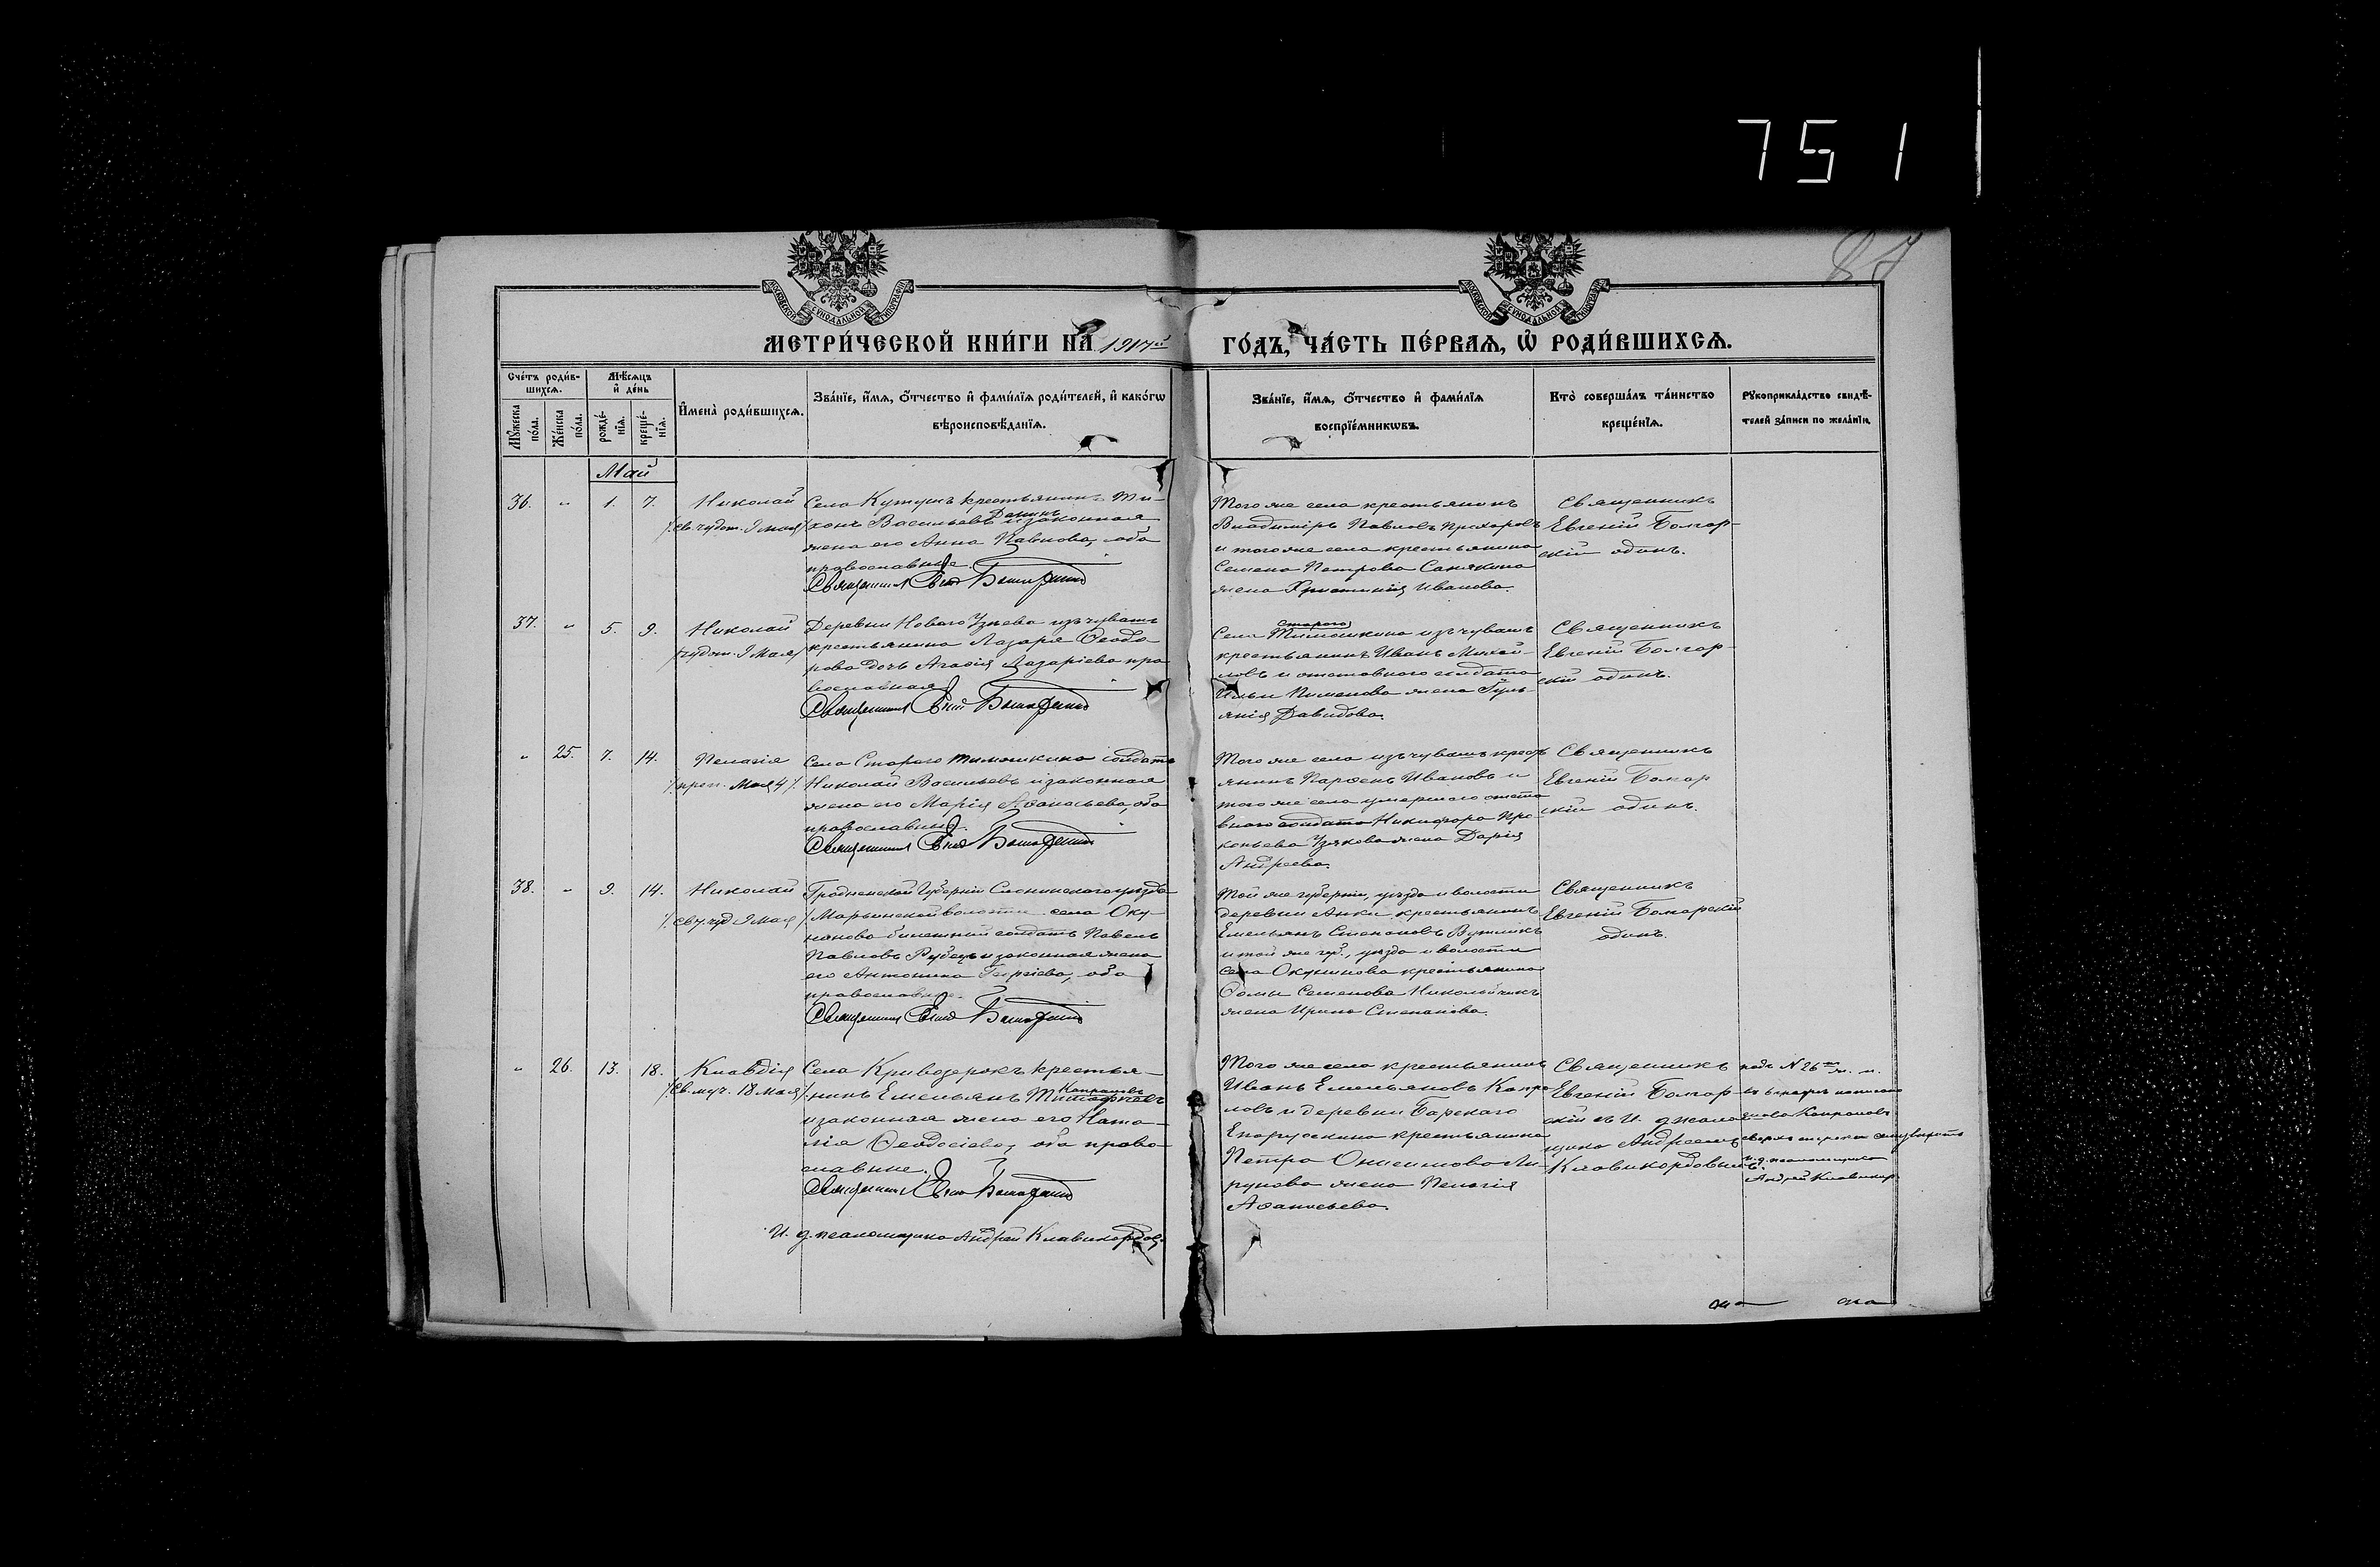 751
87
МОСКОВСКОЙ СѴНОДАЛЬНОЙ ТИПОГРАФІИ
МОСКОВСКОЙ СѴНОДАЛЬНОЙ ТИПОГРАФІИ
МЕТРИ́ЧЕСКОЙ КНИ́ГИ НА 1917й ГО́ДЪ, ЧА́СТЬ ПЕ́РВАЯ, Ѡ҆ РОДИ́ВШИХСЯ.
Сче́тъ роди́в-
шихся.
Мѣ́сяцъ
и҆ де́нь
Мꙋ́жеска
по́ла.
Же́нска
по́ла.
рожде́-
нїя.
креще́-
нїя.
И҆мена̀ роди́вшихся.
Зва́нїе, и҆́мя, ѻ҆́тчество и҆ фами́лїя роди́телей, и҆ како́гѡ
вѣроисповѣ́данїя.
Зва́нїе, и҆́мя, ѻ҆́тчество и҆ фами́лїя
воспрїе́мникѡвъ.
Кто̀ соверша́лъ та́инство
креще́нїя.
Рꙋкоприкла́дство свидѣ́-
телей за́писи по жела́нїю.
Май
36. „ 1. 7. Николай
/св. чудот. 9 мая/
Села Кутушъ крестьянинъ Ти-
хонъ Васильевъ Данинъ и законная
жена его Анна Павлова, оба
православные.
Священникъ
Того же села крестьянинъ
Владимiръ Павловъ Прохоровъ
и того же села крестьянина
Семена Петрова Санякина
жена Христинія Иванова.
Священникъ
Евгеній Болгар-
скій одинъ.
37. „ 5. 9. Николай
/чудот. 9 мая/
Деревни Новаго Узеева изъ чувашъ
крестьянина Лазаря Ѳеодо
рова дочь Агаѳія Лазаріева пра
вославная
Священникъ
Села Стараго Тимошкина изъ чувашъ
крестьянинъ Иванъ Михай-
ловъ и отставного солдата
Ильи Пименова жена Гуль-
янія Давидова.
Священникъ
Евгеній Болгар-
скій одинъ.
„ 25. 7. 14. Пелагія
/преп. Мая 4/.
Села Стараго Тимошкина солдатъ
Николай Васильевъ и законная
жена его Марія Аѳанасьева, оба
православные.
Священникъ
Того же села изъ чувашъ крест
янинъ Парѳенъ Ивановъ и
того же села умершаго отста
вного солдата Никифора Про-
копьева Узякова жена Дарія
Андреева.
Священникъ
Евгеній Болгар
скій одинъ.
38. „ 9. 14. Николай
/. св. чуд 9 мая/
Гродненской Губерніи Слонимского уѣзда
Марьинской волости села Оку-
ниново бинетный солдатъ Павелъ
Павловъ Рубецъ и законная жена
его Антонина Георгіева, оба
православные.
Священникъ
Той же губерніи, уѣзда и волости
деревни Анки крестьянинъ
Емельянъ Степановъ
и той же губ., уѣзда и волости
села Окунинова крестьянина
Ѳомы Семенова Никольчикъ
жена Ирина Степанова.
Священникъ
Евгеній Болгарскій
одинъ.
„ 26. 13. 18. Клавдія
/.Св. муч. 18 Мая/.
Села Кривозерокъ крестья-
нинъ Емельянъ Капраловъ
и законная жена его Ната-
лія Ѳеодосіева, оба право-
славные.
Священникъ
Того же села крестьянинъ
Иванъ Емельяновъ Капра
ловъ и деревни Барскаго
Енарускина крестьянина
Петра Онисимова Ли-
рукова жена Пелагія
Аѳанасьева.
Священникъ
Евгеній Болгар-
скій съ И. д псалом
щика Андреемъ
Клавикордовымъ.
подъ № 26мъ ж. п.
написано
слово Капраловъ
сверхъ строки
И. д. псаломщика
Андрей Клавикор
И. д. псаломщика Андрей Клавикордовъ